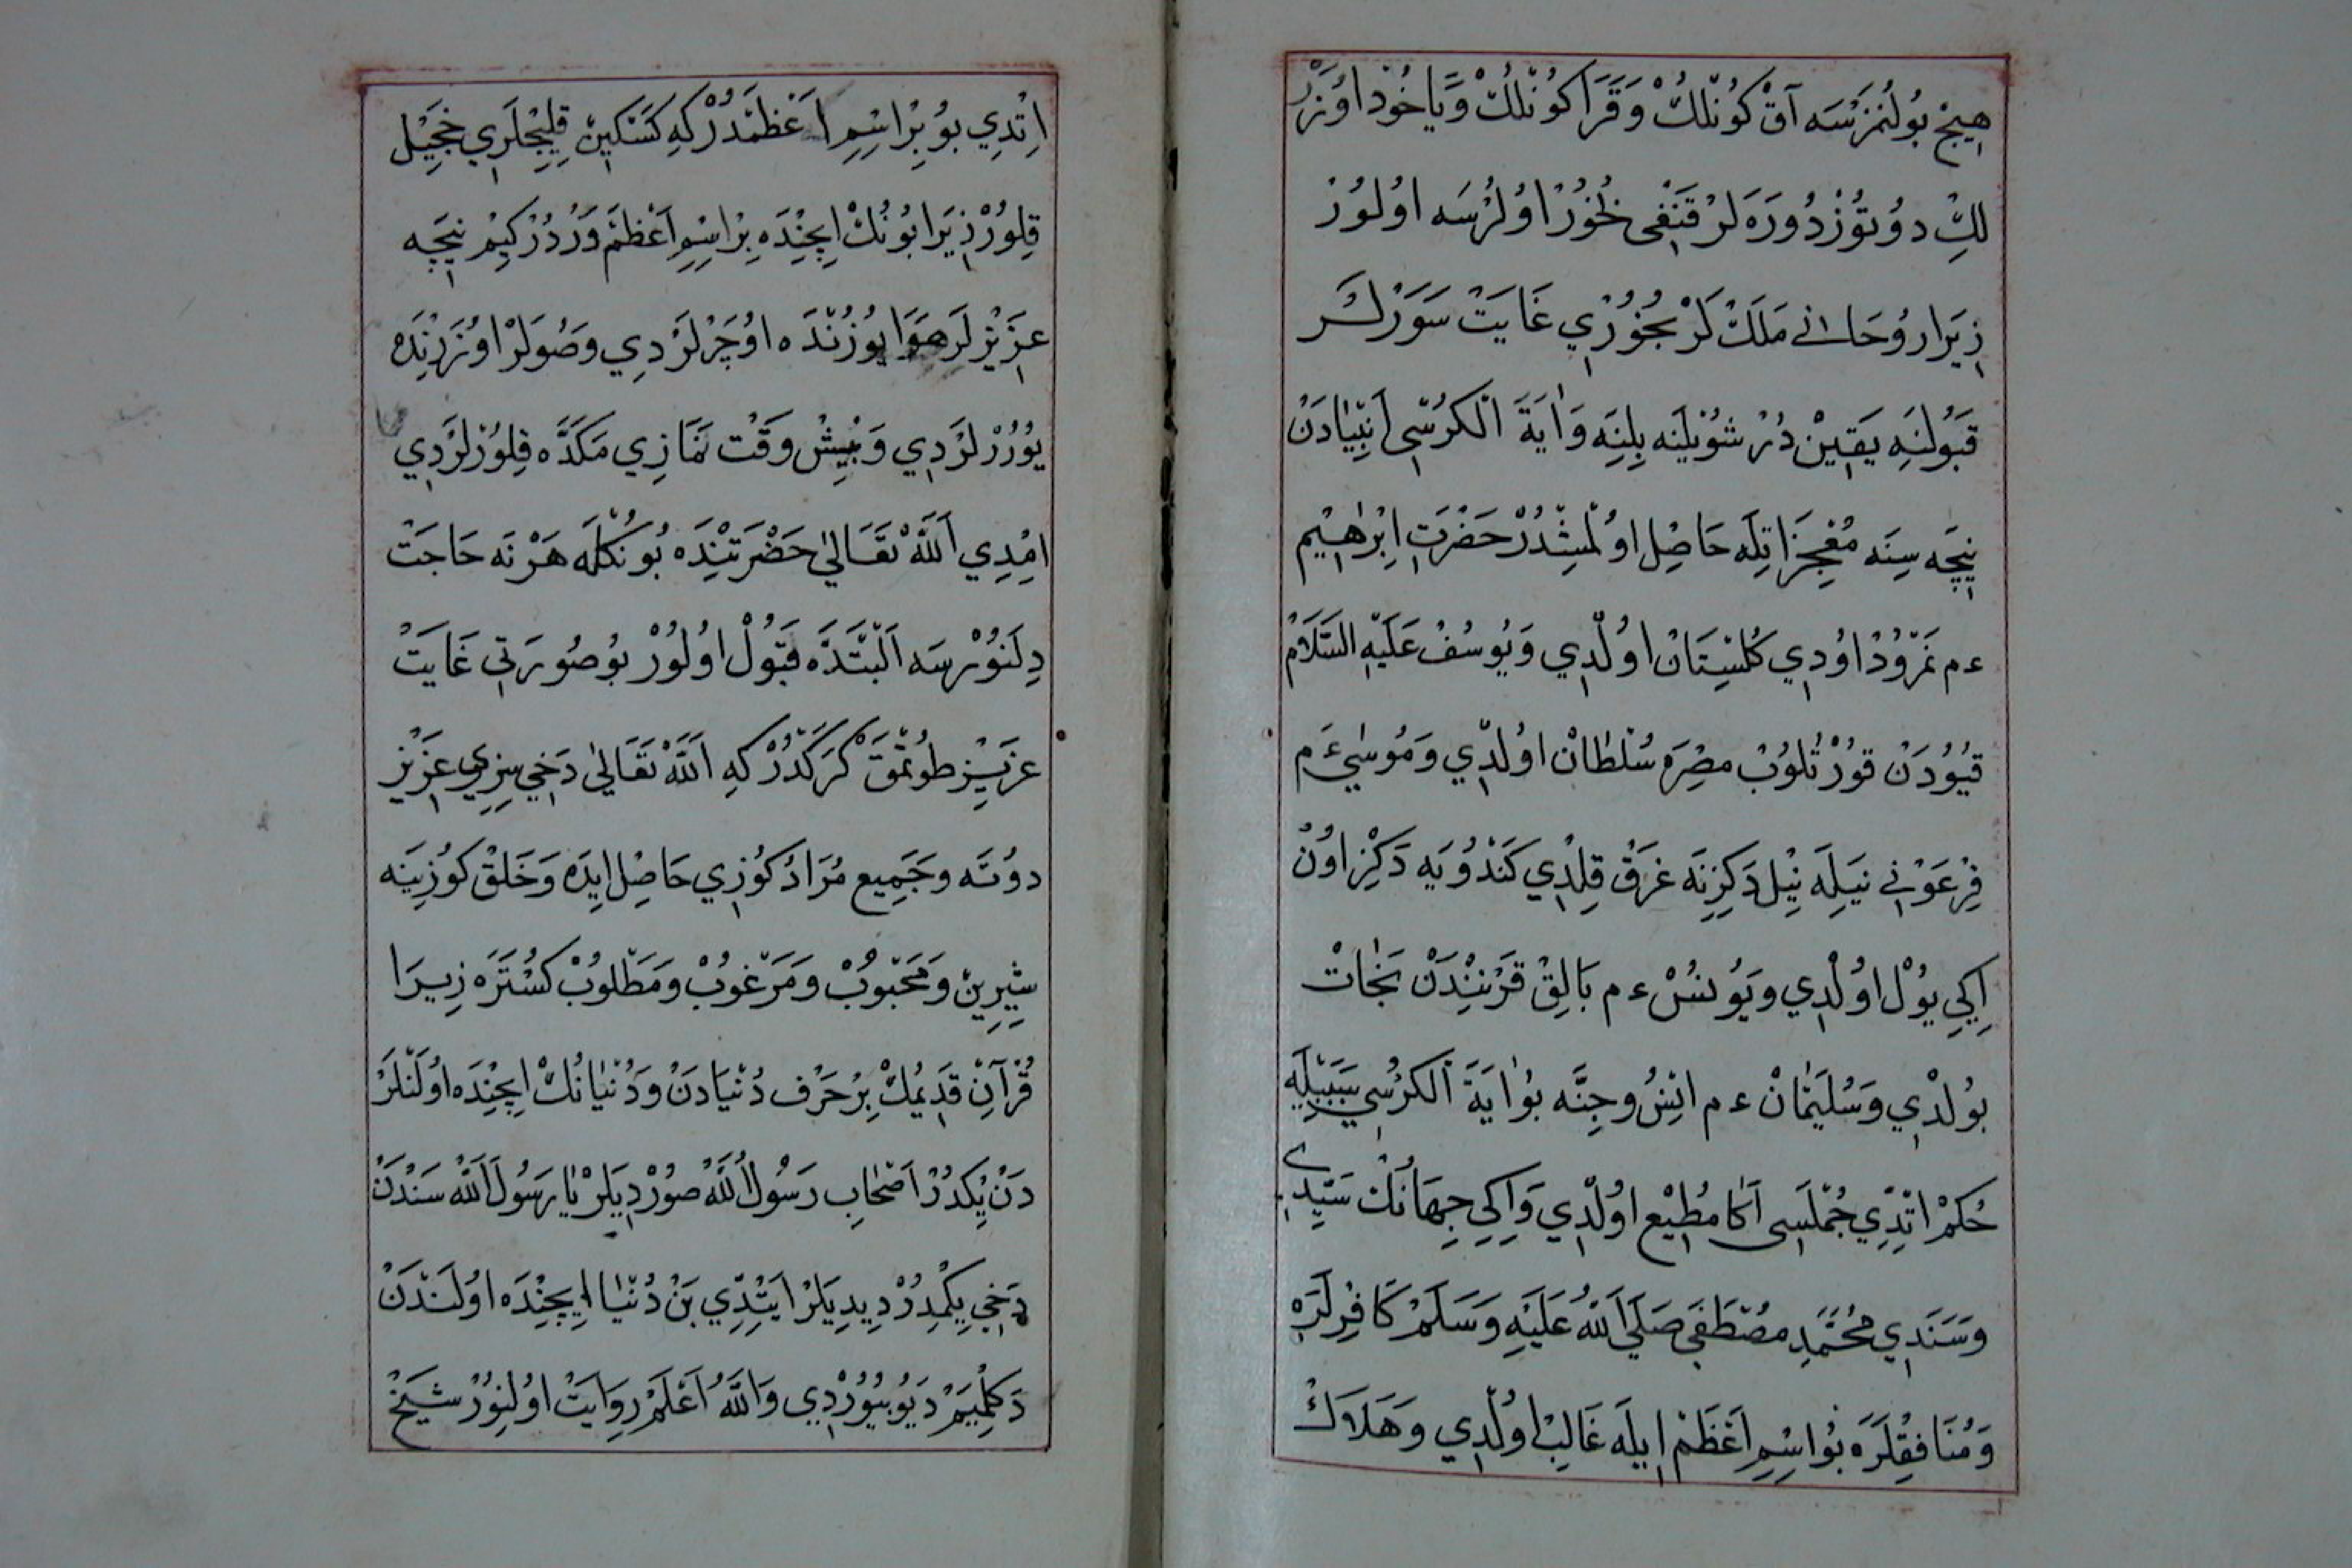 هِيجْ بُولُنْمَزْسَه آقْ كُونْلُكْ وَقَرَا كُونْلُكْ وَيَاخُودْ اوُزَرْ
لِكْ دوُتوُزْدُورَه لَرْ قَنْغِى بُخُورْ اوُلُرْسَه اوُلوُرْ
زِيَرا رُوحَانِي مَلَكْ لَرْ بُخُورِي غَايَتْ سَوَرْلَر
قَبُولِنَه يَقِينْ دُرْ شُوْيلَه بِلِنَه وَاٰيَةَ الْكُرْسِّى اَنْبِيَادَنْ
نِيچَه سِنَه مُعْجِزَاتِلَه حَاصِل اوُلْمِشْدُرْ حَضْرَتِ اِبْرٰهِيم
ءم نَمْرُودْ اوُدِي كُلِسْتَانْ اوُلْدِي وَيُوسُفْ عَلَيْهِ السَّلَامْ
قُيُودَنْ قوُرْتُلوُبْ مِصْرَه سُلْطَانْ اوُلْدِي وَمُوسٰى ءَم
فِرْعَوْنِي نَيلِه نِيْل دَكِزِنَه غَرَقْ قِلْدِي كَنْدُويَه دَكِزْ اوُنْ
اِكِي يوُلْ اوُلْدِي وَيُونُسْ ءم بَالِقْ قَرْنِنْدَنْ نَجَاتْ
بوُلْدِي وَسُلَيْمَانْ ءم اِنْسُ وجِنَّه بُواٰيَةَ الْكُرْسِي سَبَبِيْلَه
حُكمْ اتِدّي جُمْلَسِى آكَا مُطِيْع اوُلْدِي وَاِكِي جِهَانُكْ سَيِّدِي
وَسَنَدِي مُحَمَّدِ مُصْطَفَى صَلَّى اللهُ عَلَيْهِ وَسَلَّمْ كَافِرْلَرَه
وَمُنَافِقْلَرَه بُواِسْمِ اَعْظَمْ اِيلَه غَالِبْ اوُلْدِي وَهَلَاكْ
اِتْدِي بوُ بِرْ اِسْمِ اَعْظَمْدُرْ كِه كَسْكِينْ قِلِيجْلَرِي خَجِيْل
قِلوُرْ زِيَرا بُونُكْ اِيچِنْدَه بِرْ اِسْمِ اَعْظَمْ وَرْدُرْ كِيمْ نِيچَه
عَزِيْزْلَر هَوَا يُوزُنْدَه اوُچَرْلَرْدِي وَصُولَرْ اوُزَرِنْدَه
يوُرُرْلَرْدِي وَبِيْشْ وقْت نَمَازِي مَكَدَّه قِلوُرْلَرْدِي
اِمْدِي اَللهْ تَعَالىٰ حَضْرَتِنْدَه بُونُكْلَه هَرْنَه حَاجَتْ
دِلَنوُرْسَه اَلْبَتَّدَه قَبُولْ اوُلوُرْ بوُصُورَتِي غَايَتْ
عَزِيزْ طُوتْمَقْ كَرَكْدُرْ كِه اَللهْ تَعَالىٰ دَخِي سِزِي عَزِيْز
دوُتَه وجَمِيع مُرَادُكُوزِي حَاصِل اِيدَه وَخَلقْ كوُزِينَه
شِيْرِينْ وَمَحْبُوبْ وَمَرْغوُبْ وَمَطْلوُبْ كُسْتَرَه زِيرَا
قُرْآنِ قَدِيمُكْ بِرْ حَرْف دُنْيَادَنْ وَدُنْيَانُكْ اِيچِنْدَه اوُلَنْلَرْ
دَنْ يِكْدُرْ اَصْحَابِ رَسُولُ اللهْ صوُرْدِيلَرْ يَا رَسُولَ اللهْ سَنْدَنْ
دَخِي يِكْمِدُرْ دِيدِيلَرْ اَيِتّْدِي بَنْ دُنْيَا اِيچِنْدَه اوُلَنْدَنْ
دَكِلْمِيَمْ دَيُو بيُورْدِي وَاللهُ اَعْلَمْ رِوَايَتْ اوُلِنوُرْ شَيْخْ